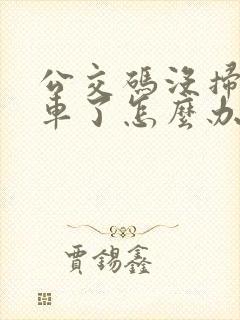 公交碼沒掃
車了怎麼办
賈錫鑫